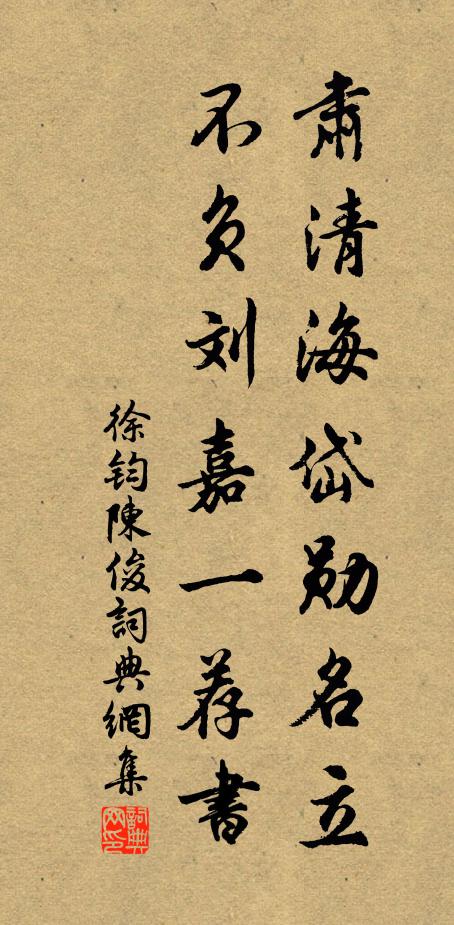 肃清海岱勋名立
不负刘嘉一荐書
徐钧陳俊詞典網集
詞典網印